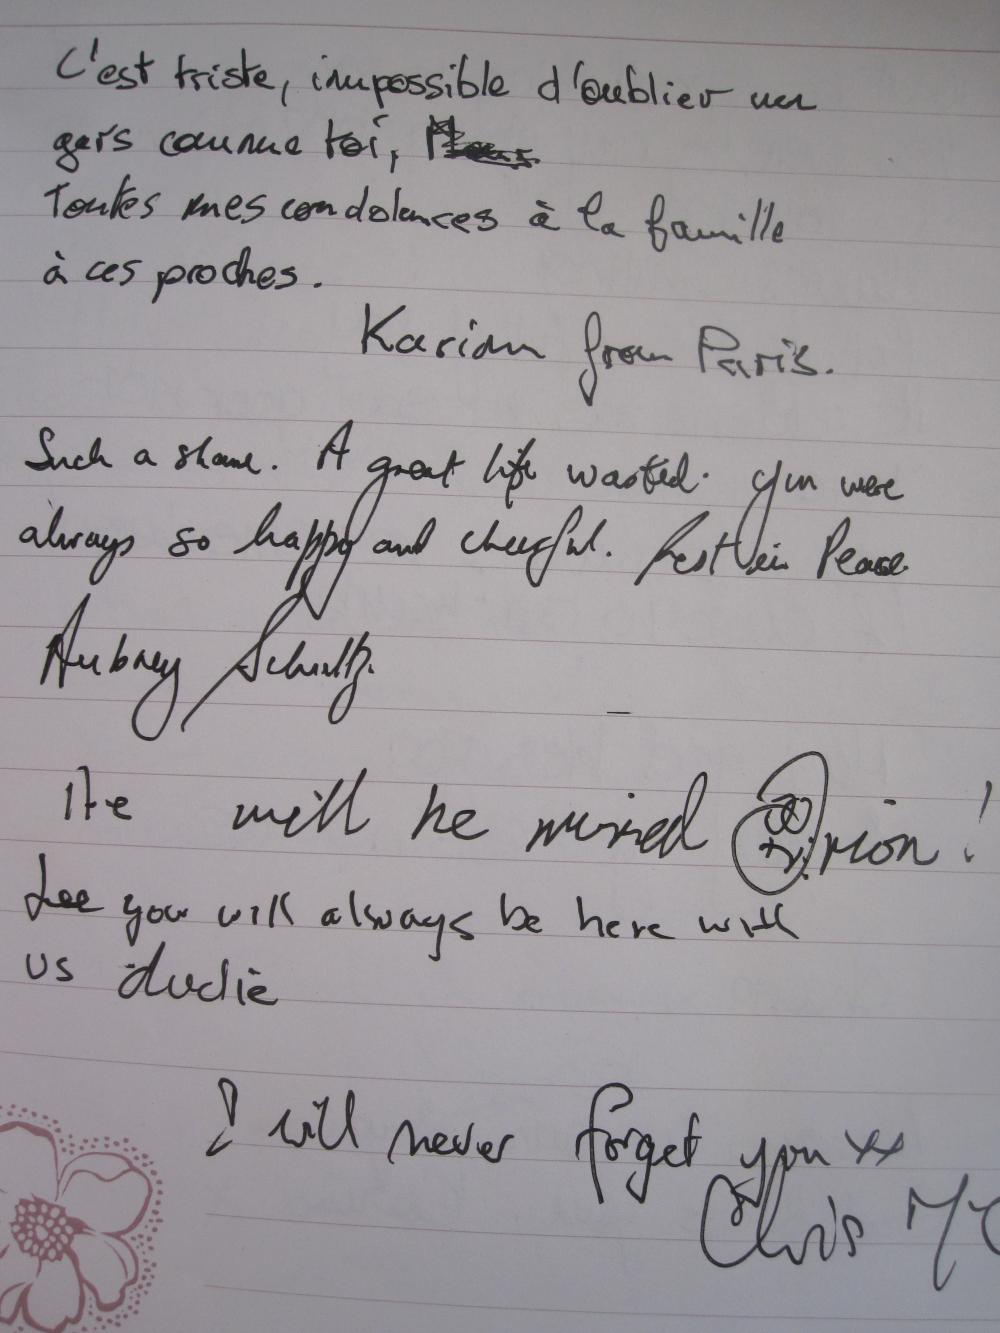 C'est triste, impossible d'oublier un
gars comme toi,
Toutes mes condolences à la famille
à ces proches.
Karim from Paris.
Such a shame. A great life wasted. You were
always so happy and cheerful. Rest in Peace
Aubrey Schultz.
He will be missed Orion!
Lee you will always be here with
us dudie
I will never forget you xx
Chris